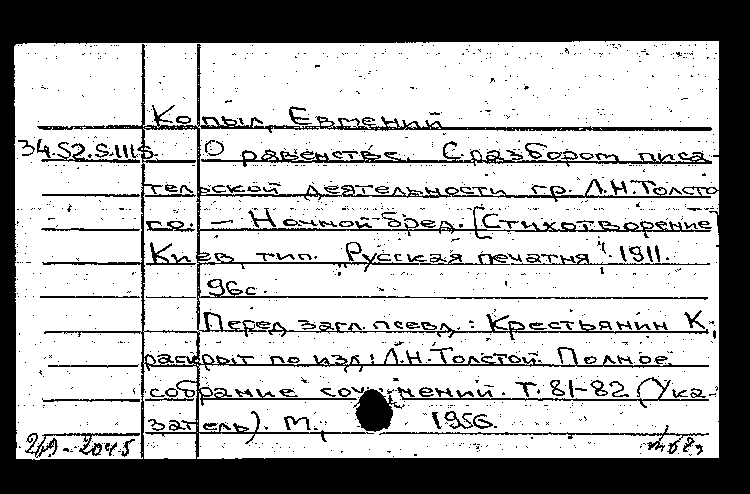 Копыл, Евгений
34.52.5.1118. О равенстве. С разбором писа-
тельской деятельности гр. Л.Н.Толсто
го. — Ночной бред. [Стихотворение]
Киев, тип. "Русская печатня". 1911.
96с.
Перед загл. псевд.: Крестьянин К.;
раскрыт по изд.: Л.Н.Толстой. Полное
собрание сочинений. Т. 81-82 (Ука-
затель). М., 1956.
269-2045